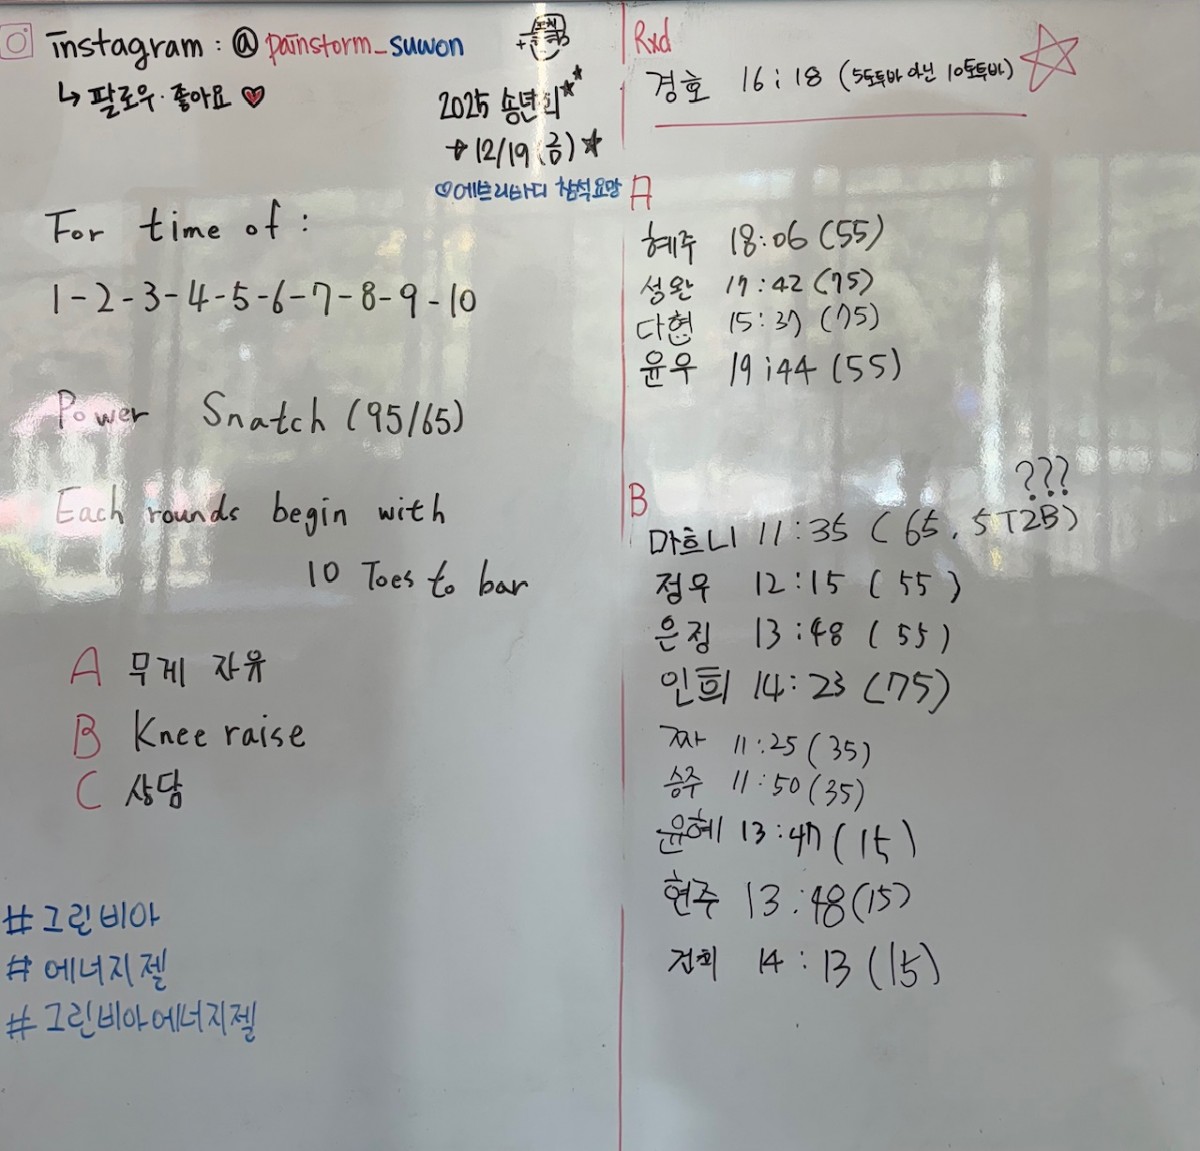 instagram : @ painstorm_suwon
↳ 팔로우 · 좋아요 ♥
2025 송년회
→ 12/19 (금) ★
♡에브리바디 참석요망
For time of :
1-2-3-4-5-6-7-8-9-10
Power Snatch (95/65)
Each rounds begin with
10 Toes to bar
A 무게 자유
B Knee raise
C 상담
#그린비아
#에너지젤
#그린비아에너지젤
Rxd
경호 16:18 (5토투바 아닌 10토투바)
A
혜주 18:06 (55)
성완 17:42 (75)
다형 15:37 (75)
윤우 19:44 (55)
B
???
마흐니 11:35 (65, 5 T2B)
정우 12:15 (55)
은징 13:48 (55)
인희 14:23 (75)
짜 11:25 (35)
승주 11:50 (35)
윤혜 13:47 (15)
현주 13:48 (15)
건희 14:13 (15)